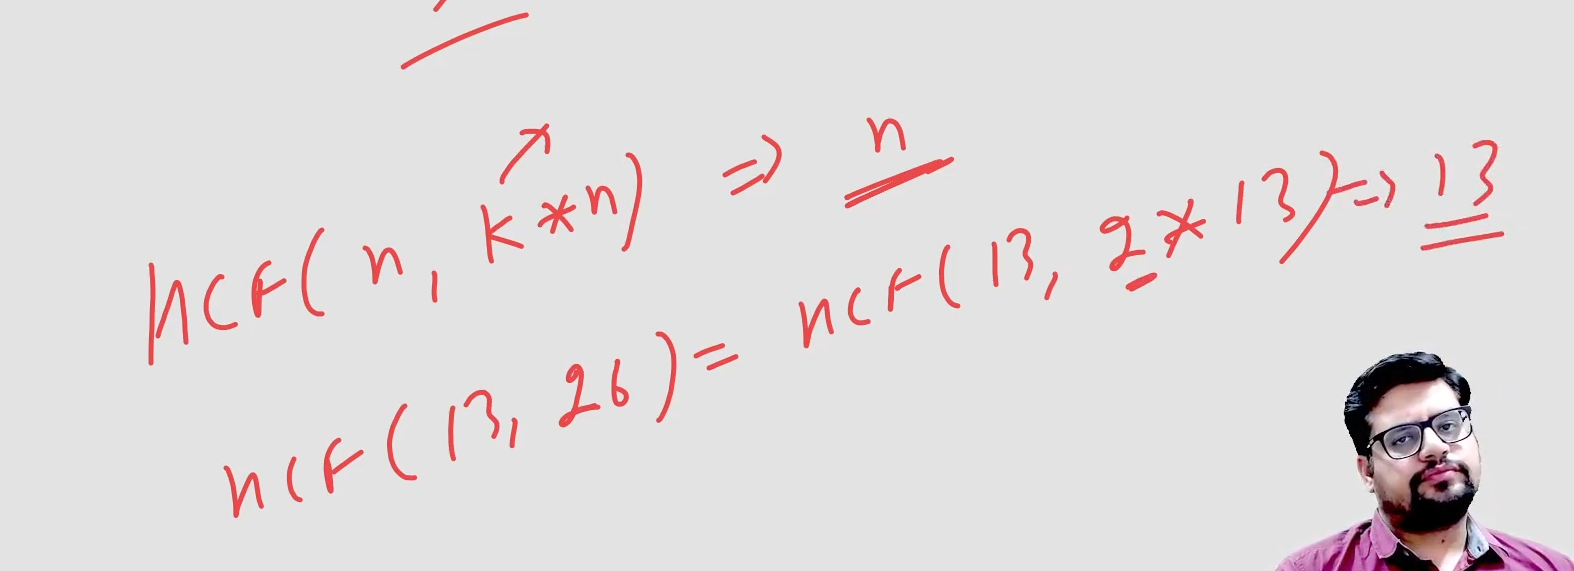 HCF(n, k*n) => n
HCF(13, 26) = HCF(13, 2*13) => 13